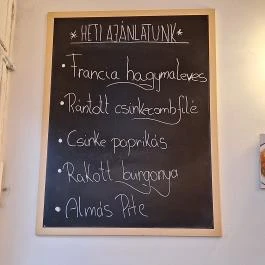 * HETI AJÁNLATUNK *
• Francia hagymaleves
• Rántott csirkecombfilé
• Csirke paprikás
• Rakott burgonya
• Almás Pite